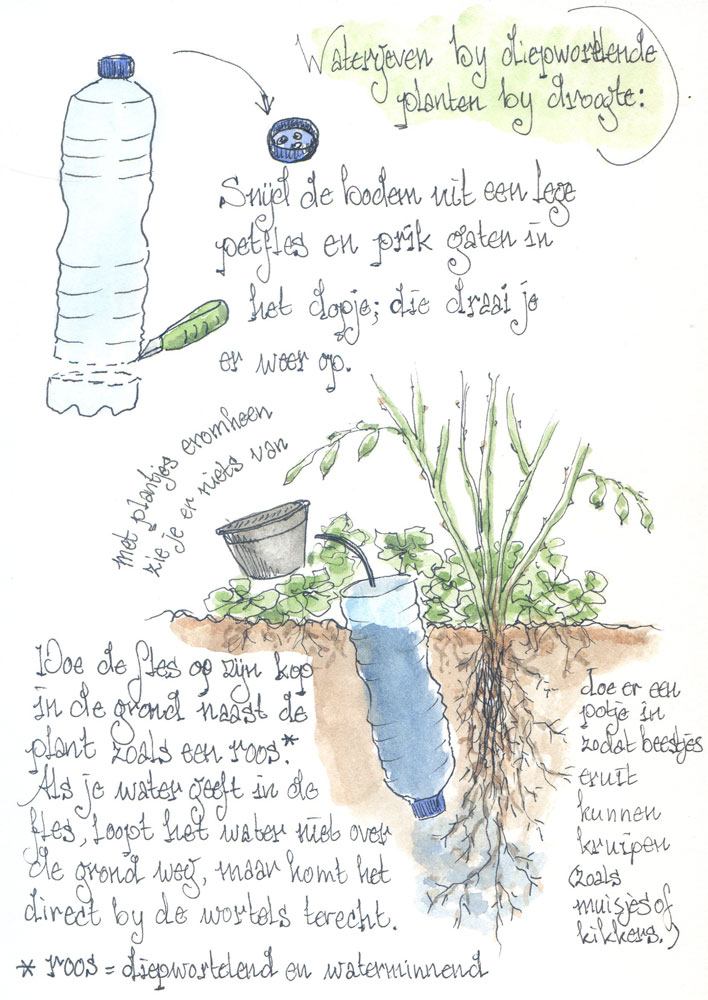 Watergeven by diepwortelende
planten by droogte:
Snijd de bodem uit een lege
petfles en prik gaten in
het dopje; die draai je
er weer op.
met plantjes eromheen
zie je er niets van
Doe de fles op zijn kop
in de grond naast de
plant zoals een roos.*
Als je water geeft in de
fles, loopt het water niet over
de grond weg, maar komt het
direct by de wortels terecht.
doe er een
potje in
zodat beestjes
eruit
kunnen
kruipen
(zoals
muisjes of
kikkers.)
* roos = diepwortelend en waterminnend